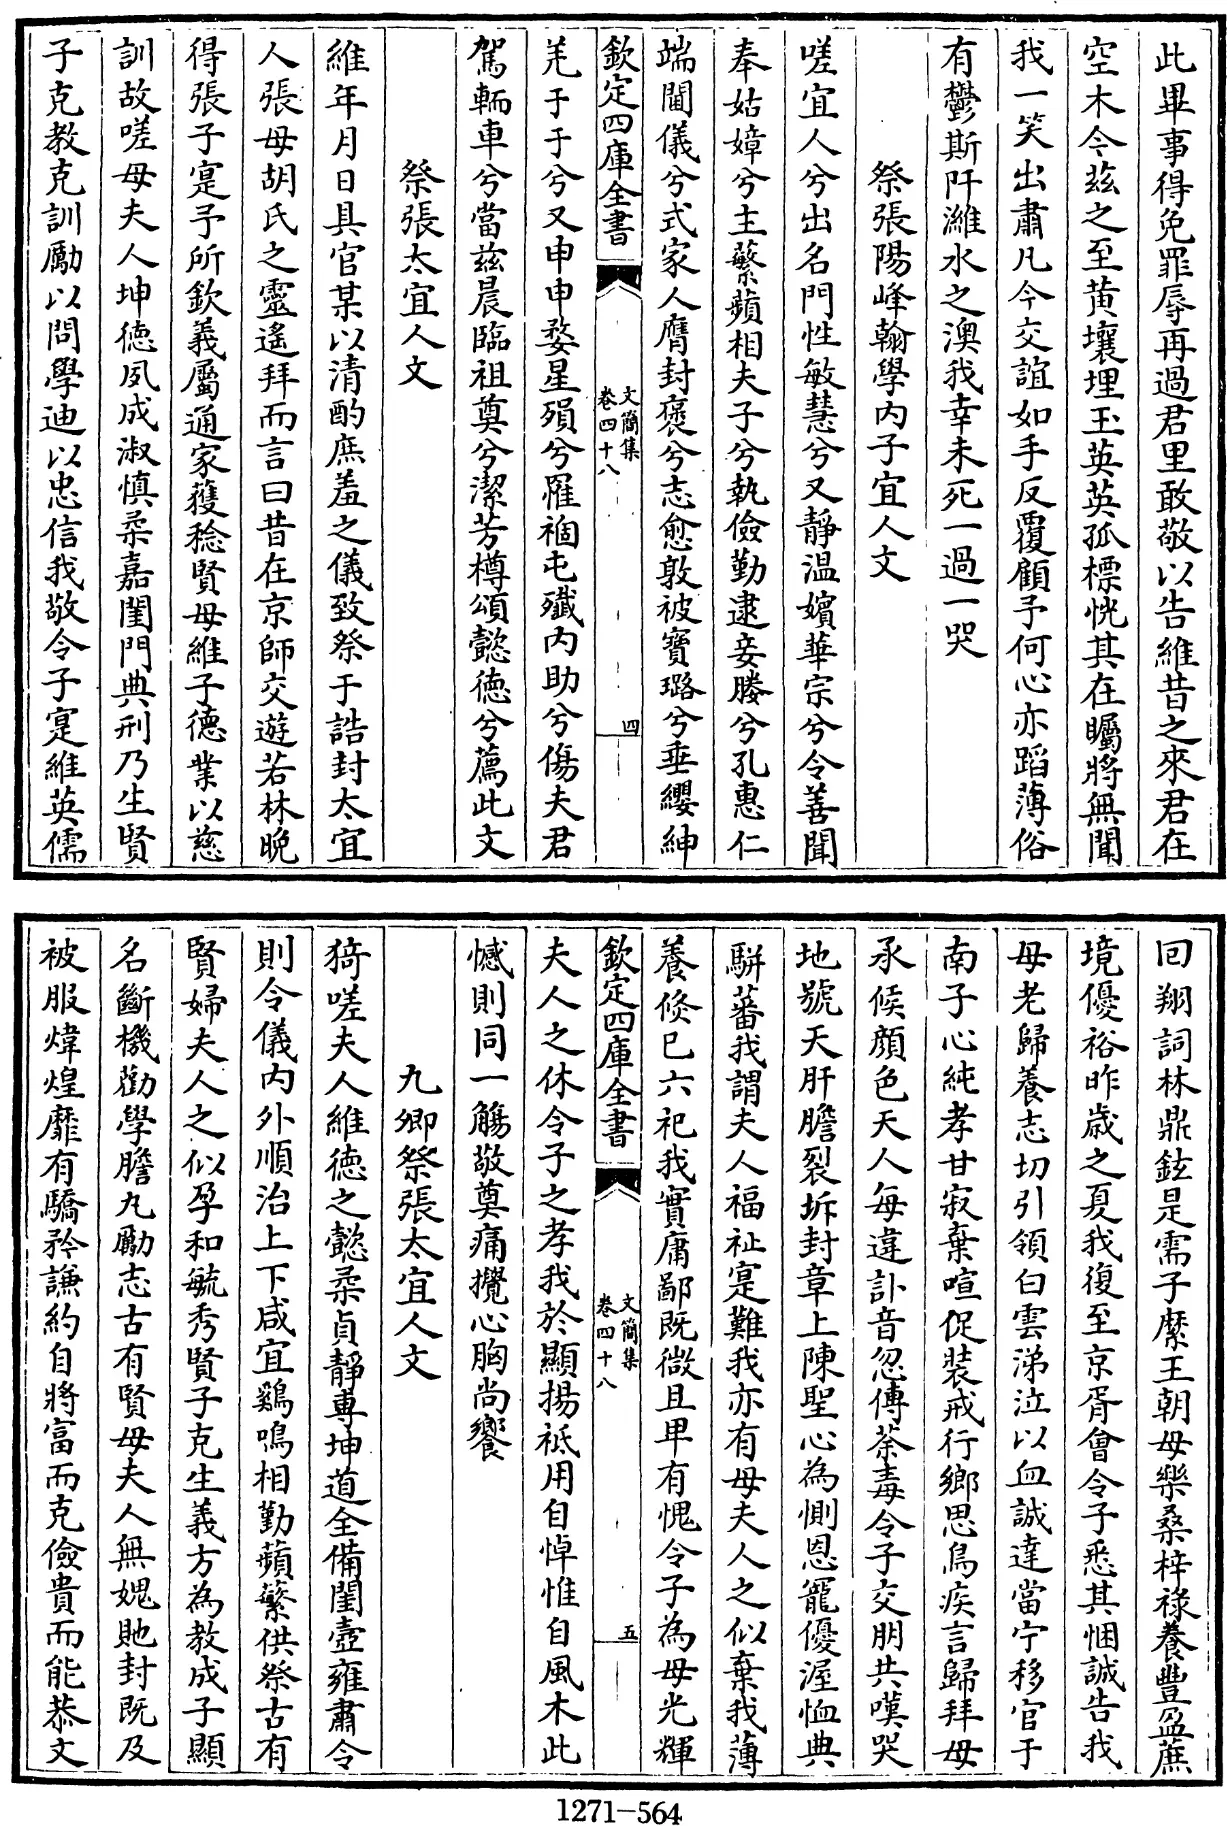 此畢事得免罪辱再過君里敢敬以告維昔之來君在
空木今茲之至黄壤埋玉英英孤標恍其在矚將無聞
我一笑出肅凡今交誼如手反覆顧予何心亦蹈薄俗
有鬱斯阡濰水之澳我幸未死一過一哭
祭張陽峰翰學内子宜人文
嗟宜人兮出名門性敏慧兮又靜温嬪華宗兮令善聞
奉姑嫜兮主蘩蘋相夫子兮執儉勤逮妾媵兮孔惠仁
端閫儀兮式家人膺封褒兮志愈敦被寶璐兮垂纓紳
欽定四庫全書
文簡集
卷四十八
四
羌于于兮又申申婺星殞兮罹禍屯殲内助兮傷夫君
駕輀車兮當茲晨臨祖奠兮潔芳樽頌懿徳兮薦此文
祭張太宜人文
維年月日具官某以清酌庶羞之儀致祭于誥封太宜
人張母胡氏之靈遙拜而言曰昔在京師交遊若林晚
得張子寔予所欽義屬通家獲稔賢母維子徳業以慈
訓故嗟母夫人坤徳夙成淑慎柔嘉閨門典刑乃生賢
子克教克訓勵以問學迪以忠信我敬令子寔維英儒
回翔詞林鼎鉉是需子縻王朝母樂桑梓禄養豐盈蔗
境優裕昨歳之夏我復至京胥會令子悉其悃誠告我
母老歸養志切引領白雲涕泣以血誠達當宁移官于
南子心純孝甘寂棄喧促裝戒行鄉思鳥疾言歸拜母
承候顔色天人每違訃音忽傳荼毒令子交朋共嘆哭
地號天肝膽裂坼封章上陳聖心為惻恩寵優渥恤典
駢蕃我謂夫人福祉寔難我亦有母夫人之似棄我薄
養倐已六祀我實庸鄙既微且卑有愧令子為母光輝
欽定四庫全書
文簡集
卷四十八
五
夫人之休令子之孝我於顯揚祗用自悼惟自風木此
憾則同一觴敬奠痛攪心胸尚饗
九卿祭張太宜人文
猗嗟夫人維徳之懿柔貞靜專坤道全備閨壼雍肅令
則令儀内外順治上下咸宜鷄鳴相勤蘋蘩供祭古有
賢婦夫人之似孕和毓秀賢子克生義方為教成子顯
名斷機勸學膽丸勵志古有賢母夫人無媿貤封既及
被服煒煌靡有驕矜謙約自將富而克儉貴而能恭文
1271-564